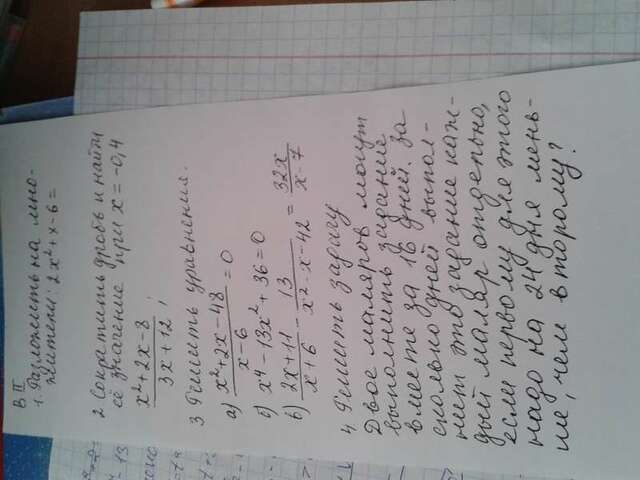 В II
1. Разложить на мно-
жители: 2x² + x - 6 =
2 Сократить дробь и найти
её значение при x = -0,4
x² + 2x - 8
3x + 12 ;
3 Решить уравнения.
а) x² + 2x - 48 / x - 6 = 0
б) x⁴ - 13x² + 36 = 0
в) 2x + 11 / x + 6 - 13 / x² - x - 42 = 32x / x - 7
4. Решить задачу
Двое маляров могут
выполнить задание
вместе за 16 дней. За
сколько дней выпол-
нит это задание каж-
дый маляр отдельно,
если первому для этого
надо на 24 дня мень-
ше, чем второму?